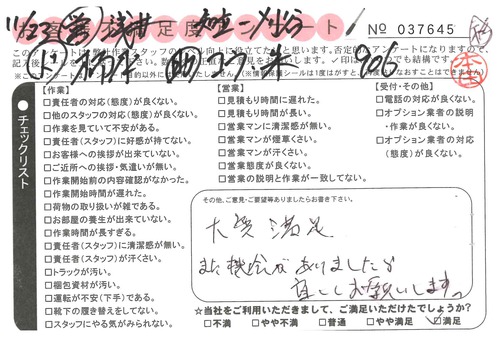 11/23 営
№ 037645
足度
ート!
このアンケートは弊社作業スタッフの
向上に役立てたいと思います。否定的なアンケートになりますので、
906
本住
チェックリスト
【作業】
□責任者の対応(態度)が良くない。
□他のスタッフの対応(態度)が良くない。
□作業を見ていて不安がある。
□責任者(スタッフ)に好感が持てない。
□お客様への挨拶が出来ていない。
□ご近所への挨拶・気遣いが無い。
□作業開始前の内容確認がなかった。
□作業開始時間が遅れた。
□荷物の取り扱いが雑である。
□お部屋の養生が出来ていない。
□作業時間が長すぎる。
□責任者(スタッフ)に清潔感が無い。
□責任者(スタッフ)が汗くさい。
□トラックが汚い。
□梱包資材が汚い。
□運転が不安(下手)である。
□靴下の履き替えをしてない。
□スタッフにやる気がみられない。
【営業】
□見積もり時間に遅れた。
□見積もり時間が長い。
□営業マンに清潔感が無い。
□営業マンが煙草くさい。
□営業マンが汗くさい。
□営業態度が良くない。
□営業の説明と作業が一致してない。
【受付・その他】
□電話の対応が良くない。
□オプション業者の説明
・作業が良くない。
□オプション業者の対応
(態度)が良くない。
その他、ご意見・ご要望等ありましたらお書き下さい。
大変満足
また機会がありましたら
宜しくお願いします。
☆当社をご利用いただきまして、ご満足いただけたでしょうか?
□不満 □やや不満 □普通 □やや満足 ☑満足